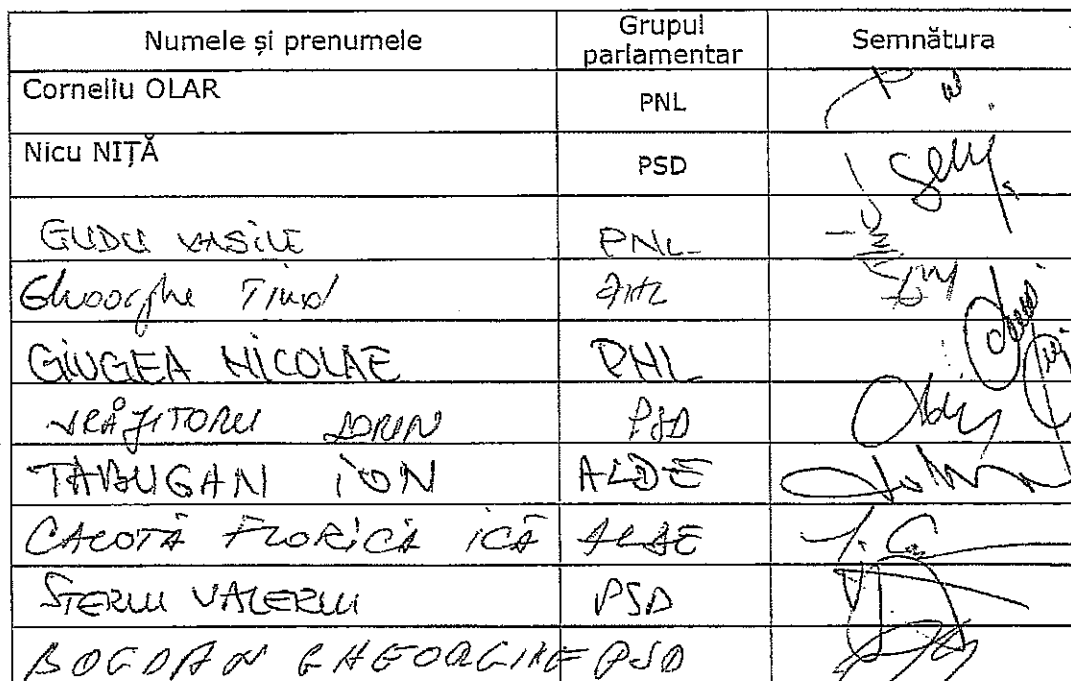 Numele și prenumele Grupul parlamentar Semnătura
Corneliu OLAR PNL
Nicu NIȚĂ PSD
GUDU VASILE PNL
Gheorghe
GIUGEA NICOLAE PNL
VRĂJITORU SORIN PSD
TABUGAN ION ALDE
CALOTĂ FLORICĂ ICĂ ALDE
STERIU VALERIU PSD
BOGDAN GHEORGHE PSD